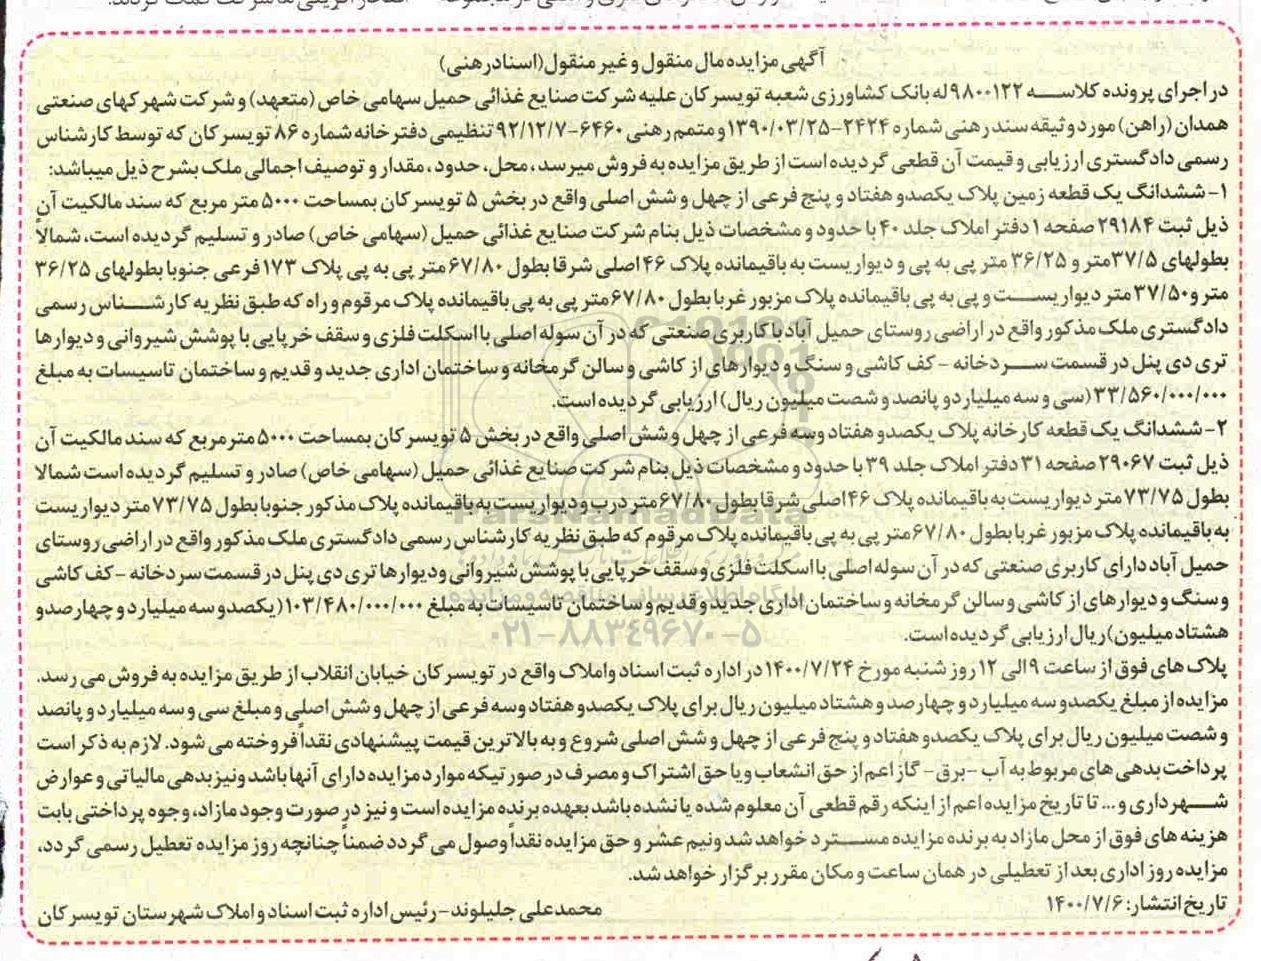 آگهی مزایده مال منقول و غیر منقول(اسناد رهنی)
در اجرای پرونده کلاســـه ۹۸۰۰۱۲۲ له بانک کشاورزی شعبه تویسرکان علیه شرکت صنایع غذائی حمیل سهامی خاص (متعهد) و شرکت شهرکهای صنعتی
همدان (راهن) مورد وثیقه سند رهنی شماره ۲۴۲۴-۱۳۹۰/۰۳/۲۵ و متمم رهنی ۶۴۶۰-۹۲/۱۲/۷ تنظیمی دفترخانه شماره ۸۶ تویسرکان که توسط کارشناس
رسمی دادگستری ارزیابی و قیمت آن قطعی گردیده است از طریق مزایده به فروش میرسد، محل، حدود، مقدار و توصیف اجمالی ملک بشرح ذیل میباشد:
۱- ششدانگ یک قطعه زمین پلاک یکصدو هفتاد و پنج فرعی از چهل و شش اصلی واقع در بخش ۵ تویسرکان بمساحت ۵۰۰۰ متر مربع که سند مالکیت آن
ذیل ثبت ۲۹۱۸۴ صفحه ۱ دفتر املاک جلد ۴۰ با حدود و مشخصات ذیل بنام شرکت صنایع غذائی حمیل (سهامی خاص) صادر و تسلیم گردیده است، شمالاً
بطولهای ۳۷/۵ متر و ۳۶/۲۵ متر پی به پی و دیواریست به باقیمانده پلاک ۴۶ اصلی شرقا بطول ۶۷/۸۰ متر پی به پی پلاک ۱۷۳ فرعی جنوبا بطولهای ۳۶/۲۵
متر و ۳۷/۵۰ متر دیواریســـت و پی به پی باقیمانده پلاک مزبور غربا بطول ۶۷/۸۰ متر پی به پی باقیمانده پلاک مرقوم و راه که طبق نظریه کارشـــناس رسمی
دادگستری ملک مذکور واقع در اراضی روستای حمیل آباد با کاربری صنعتی که در آن سوله اصلی با اسکلت فلزی و سقف خرپایی با پوشش شیروانی و دیوارها
تری دی پنل در قسمت ســـردخانه - کف کاشی و سنگ و دیوارهای از کاشی و سالن گرمخانه و ساختمان اداری جدید و قدیم و ساختمان تاسیسات به مبلغ
۳۳/۵۶۰/۰۰۰/۰۰۰ (سی و سه میلیارد و پانصد و شصت میلیون ریال) ارزیابی گردیده است.
۲- ششدانگ یک قطعه کارخانه پلاک یکصدو هفتاد وسه فرعی از چهل و شش اصلی واقع در بخش ۵ تویسرکان بمساحت ۵۰۰۰ متر مربع که سند مالکیت آن
ذیل ثبت ۲۹۰۶۷ صفحه ۳۱ دفتر املاک جلد ۳۹ با حدود و مشخصات ذیل بنام شرکت صنایع غذائی حمیل (سهامی خاص) صادر و تسلیم گردیده است شمالا
بطول ۷۳/۷۵ متر دیواریست به باقیمانده پلاک ۴۶ اصلی شرقا بطول ۶۷/۸۰ متر درب و دیواریست به باقیمانده پلاک مذکور جنوبا بطول ۷۳/۷۵ متر دیواریست
به باقیمانده پلاک مزبور غربا بطول ۶۷/۸۰ متر پی به پی باقیمانده پلاک مرقوم که طبق نظریه کارشناس رسمی دادگستری ملک مذکور واقع در اراضی روستای
حمیل آباد دارای کاربری صنعتی که در آن سوله اصلی با اسکلت فلزی و سقف خرپایی با پوشش شیروانی ودیوارها تری دی پنل در قسمت سردخانه - کف کاشی
و سنگ و دیوارهای از کاشی و سالن گرمخانه و ساختمان اداری جدید و قدیم و ساختمان تاسیسات به مبلغ ۱۰۳/۴۸۰/۰۰۰/۰۰۰ (یکصدو سه میلیارد و چهارصدو
هشتاد میلیون) ریال ارزیابی گردیده است.
۰۲۱-۸۸۳۴۹۶۷۰-۵
پلاک های فوق از ساعت ۹ الی ۱۲ روز شنبه مورخ ۱۴۰۰/۷/۲۴ در اداره ثبت اسناد واملاک واقع در تویسرکان خیابان انقلاب از طریق مزایده به فروش می رسد.
مزایده از مبلغ یکصدو سه میلیارد و چهارصد و هشتاد میلیون ریال برای پلاک یکصدو هفتاد وسه فرعی از چهل و شش اصلی و مبلغ سی و سه میلیارد و پانصد
و شصت میلیون ریال برای پلاک یکصدو هفتاد و پنج فرعی از چهل و شش اصلی شروع و به بالاترین قیمت پیشنهادی نقداً فروخته می شود. لازم به ذکر است
پرداخت بدهی های مربوط به آب -برق- گاز اعم از حق انشعاب ویا حق اشتراک و مصرف در صورتیکه مورد مزایده دارای آنها باشد ونیز بدهی مالیاتی و عوارض
شـــهرداری و... تا تاریخ مزایده اعم از اینکه رقم قطعی آن معلوم شده یا نشده باشد بعهده برنده مزایده است و نیز در صورت وجود مازاد، وجوه پرداختی بابت
هزینه های فوق از محل مازاد به برنده مزایده مســـترد خواهد شد ونیم عشر و حق مزایده نقداً وصول می گردد ضمناً چنانچه روز مزایده تعطیل رسمی گردد،
مزایده روز اداری بعد از تعطیلی در همان ساعت و مکان مقرر برگزار خواهد شد.
تاریخ انتشار: ۱۴۰۰/۷/۶
محمدعلی جلیلوند-رئیس اداره ثبت اسناد و املاک شهرستان تویسرکان